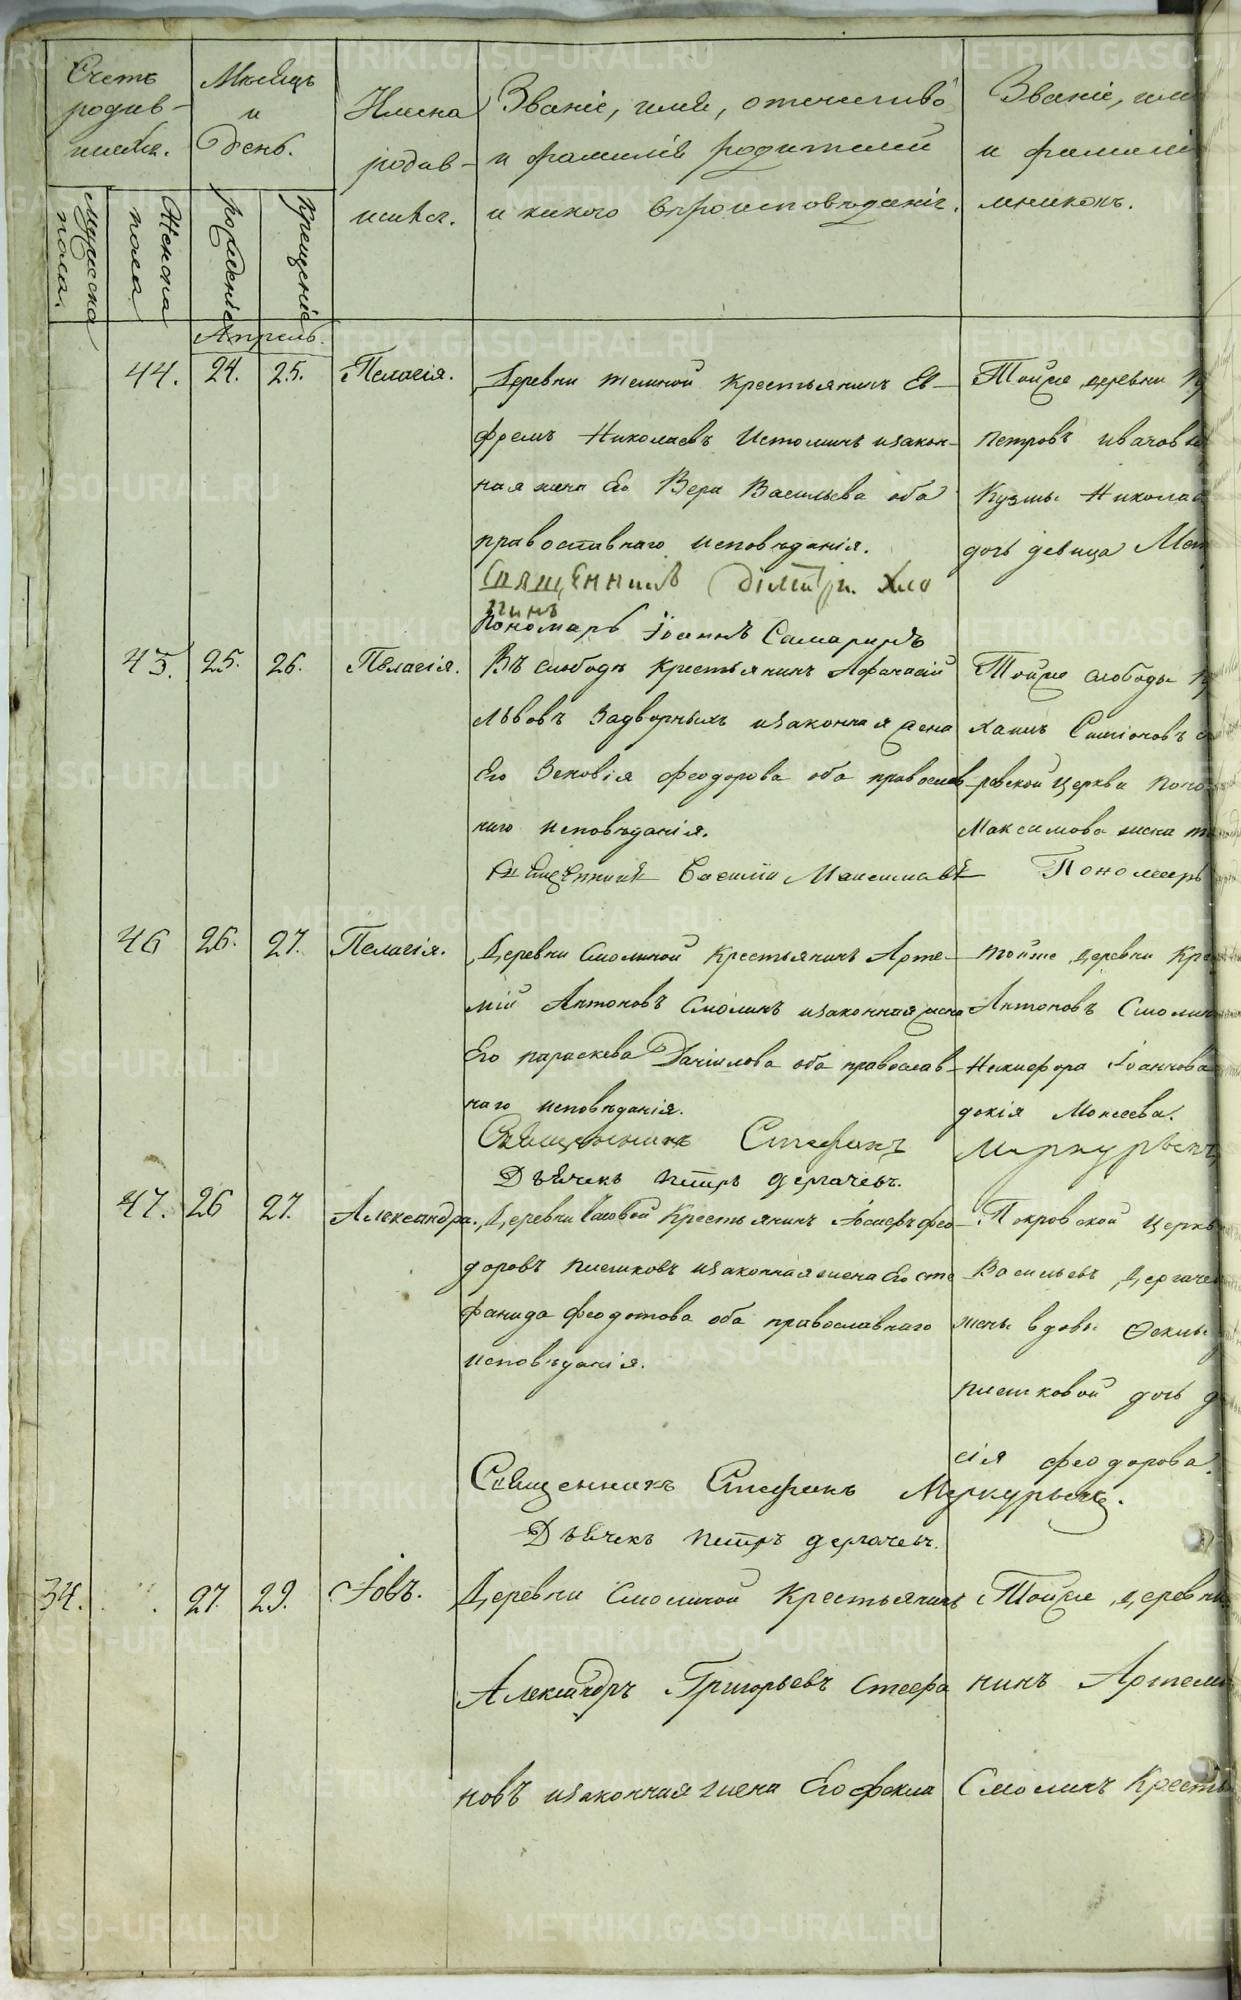 Счетъ
родив-
шихся.
Мѣсяцъ
и
день.
Имена
родив-
шихся.
Званіе, имя, отечество
и фамилія родителей
и какого вѣроисповѣданія.
Званіе, имя
и фамилі
мниковъ.
Мужеска
пола.
Женска
пола
рожденіе
крещеніе
Апрель.
44. 24. 25. Пелагія.
Деревни темной Крестьянинъ Еѳ-
фремъ Николаевъ Истоминъ изакон-
ная жена Его Вера Васильева оба
православнаго исповѣданія.
Священникъ Димитри. Хло
пинъ
Пономарь Іоаннъ Самаринъ
Тойже деревни
петровъ
Кузмы Никола
дочь девица
45. 25. 26. Пелагія.
Въ слободѣ Крестьянинъ Афанасій
Львовъ Задворныхъ изаконная жена
Его Зеновія феодорова оба православ-
наго исповѣданія.
Священникъ Василій Максимовъ Пономарь
Тойже слободы
Симіоновъ
ровской Церкви поно
Максимова жена
46 26. 27. Пелагія.
Деревни Смолиной Крестьянинъ Арте-
мій Антоновъ Смолинъ изаконная жена
Его параскева Даніилова оба православ-
наго исповѣданія.
Священникъ Стефанъ Меркурьевъ
Дьячекъ петръ дергачевъ.
тойже деревни Кре
Антоновъ Смолин
Никифора Іоаннова
докія Моисеева.
47. 26 27. Александра.
Деревни Іосифъ фео-
доровъ пишковъ изаконная жена Его сте
фанида феодотова оба православнаго
исповѣданія.
Священникъ Стефанъ Меркурьевъ.
Дьячекъ петръ дергачевъ.
Покровской церкв
Васильевъ Дергаче
жены вдовы
пишковой дочь
сія феодорова.
34. 27. 29. Іовъ.
Деревни Смолиной Крестьянинъ
Александръ Григорьевъ стефа
новъ изаконная жена Его фекла
Тойже деревни
нинъ Артеми
Смолинъ Кресть
METRIKI.GASO-URAL.RU